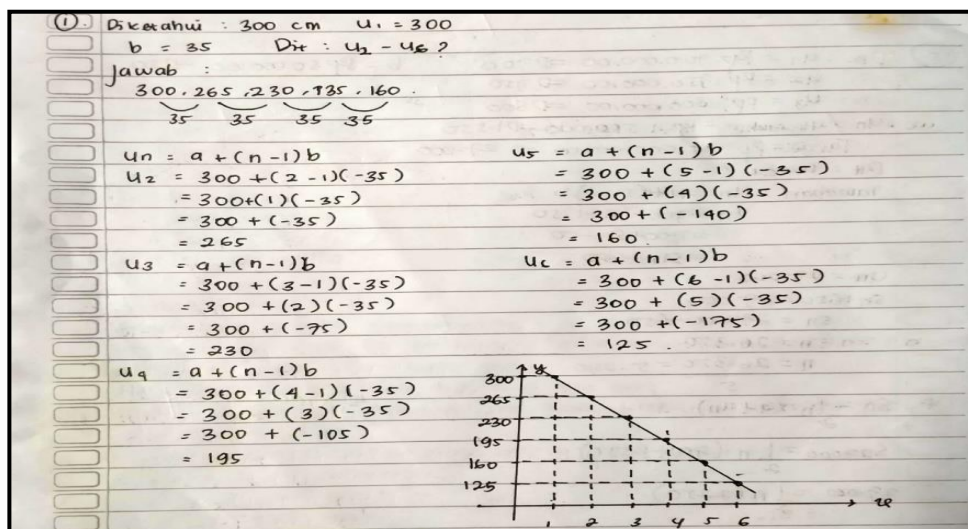 ① Diketahui : 300 cm U₁ = 300
b = 35 Dit : U₂ - U₆ ?
Jawab :
300, 265, 230, 195, 160.
35 35 35 35
Un = a + (n-1)b
U₂ = 300 + (2-1)(-35)
= 300+(1)(-35)
= 300 + (-35)
= 265
U₃ = a + (n-1)b
= 300 + (3-1)(-35)
= 300 + (2)(-35)
= 300 + (-75)
= 230
U₄ = a + (n-1)b
= 300 + (4-1)(-35)
= 300 + (3)(-35)
= 300 + (-105)
= 195
U₅ = a + (n-1)b
= 300 + (5-1)(-35)
= 300 + (4)(-35)
= 300 + (-140)
= 160.
U₆ = a + (n-1)b
= 300 + (6-1)(-35)
= 300 + (5)(-35)
= 300 + (-175)
= 125.
y
300
265
230
195
160
125
1 2 3 4 5 6